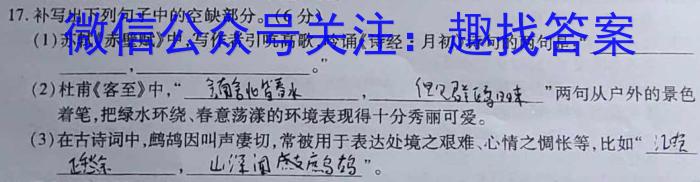 17.补写出下列句子中的空缺部分。(6分)
微信公众号关注：趣找答案
(1)苏轼《赤壁赋》中,写作者引吭高歌、吟诵《诗经·月初》诗句的两句是:“
，。”
(2)杜甫《客至》中,“舍南舍北皆春水，但见群鸥日日来”两句从户外的景色
着笔,把绿水环绕、春意荡漾的环境表现得十分秀丽可爱。
(3)在古诗词中,鹧鸪因叫声凄切,常被用于表达处境之艰难、心情之惆怅等,比如“江晚
正愁余，山深闻鹧鸪”。